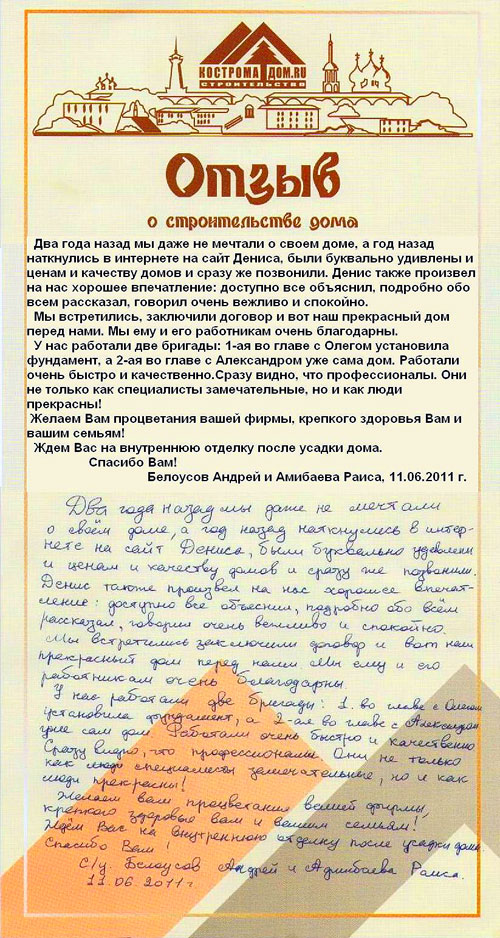 КОСТРОМА ДОМ.RU
СТРОИТЕЛЬСТВО
Отзыв
о строительстве дома
Два года назад мы даже не мечтали о своем доме, а год назад
наткнулись в интернете на сайт Дениса, были буквально удивлены и
ценам и качеству домов и сразу же позвонили. Денис также произвел
на нас хорошее впечатление: доступно все объяснил, подробно обо
всем рассказал, говорил очень вежливо и спокойно.
Мы встретились, заключили договор и вот наш прекрасный дом
перед нами. Мы ему и его работникам очень благодарны.
У нас работали две бригады: 1-ая во главе с Олегом установила
фундамент, а 2-ая во главе с Александром уже сама дом. Работали
очень быстро и качественно.Сразу видно, что профессионалы. Они
не только как специалисты замечательные, но и как люди
прекрасны!
Желаем Вам процветания вашей фирмы, крепкого здоровья Вам и
вашим семьям!
Ждем Вас на внутреннюю отделку после усадки дома.
Спасибо Вам!
Белоусов Андрей и Амибаева Раиса, 11.06.2011 г.
Два года назад мы даже не мечтали
о своём доме, а год назад наткнулись в интер-
нете на сайт Дениса, были буквально удивлены
и ценам и качеству домов и сразу же позвонили.
Денис также произвел на нас хорошее впечат-
ление: доступно все объяснил, подробно обо всём
рассказал, говорил очень вежливо и спокойно.
Мы встретились заключили договор и вот наш
прекрасный дом перед нами. Мы ему и его
работникам очень благодарны.
У нас работали две бригады: 1. во главе с Олегом
установила фундамент, а 2-ая во главе с Александром
уже сам дом. Работали очень быстро и качественно
Сразу видно, что профессионалы. Они не только
как люди специалисты замечательные, но и как
люди прекрасны!
Желаем вам процветания вашей фирмы,
крепкого здоровья вам и вашим семьям!
Ждём Вас на внутреннюю отделку после усадки дома
Спасибо Вам!
С/у. Белоусов Андрей и Раиса.
11.06.2011г